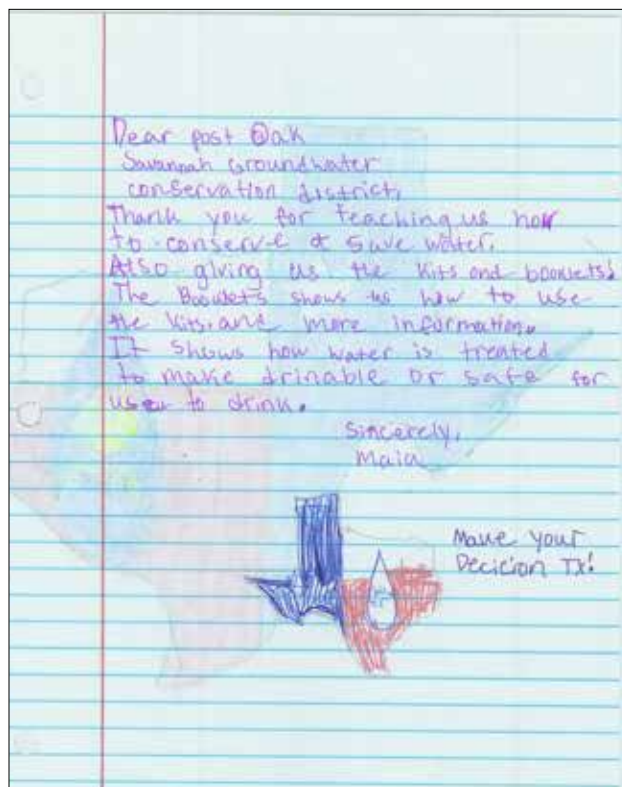 Dear post Oak
Savannah Groundwater
conservation district,
Thank you for teaching us how
to conserve & save water.
Also giving us the kits and booklets!
The Booklets shows us how to use
the kits, and more information.
It shows how water is treated
to make drinable or safe for
us to drink.
Sincerely,
Maia
Make your
Decicion Tx!